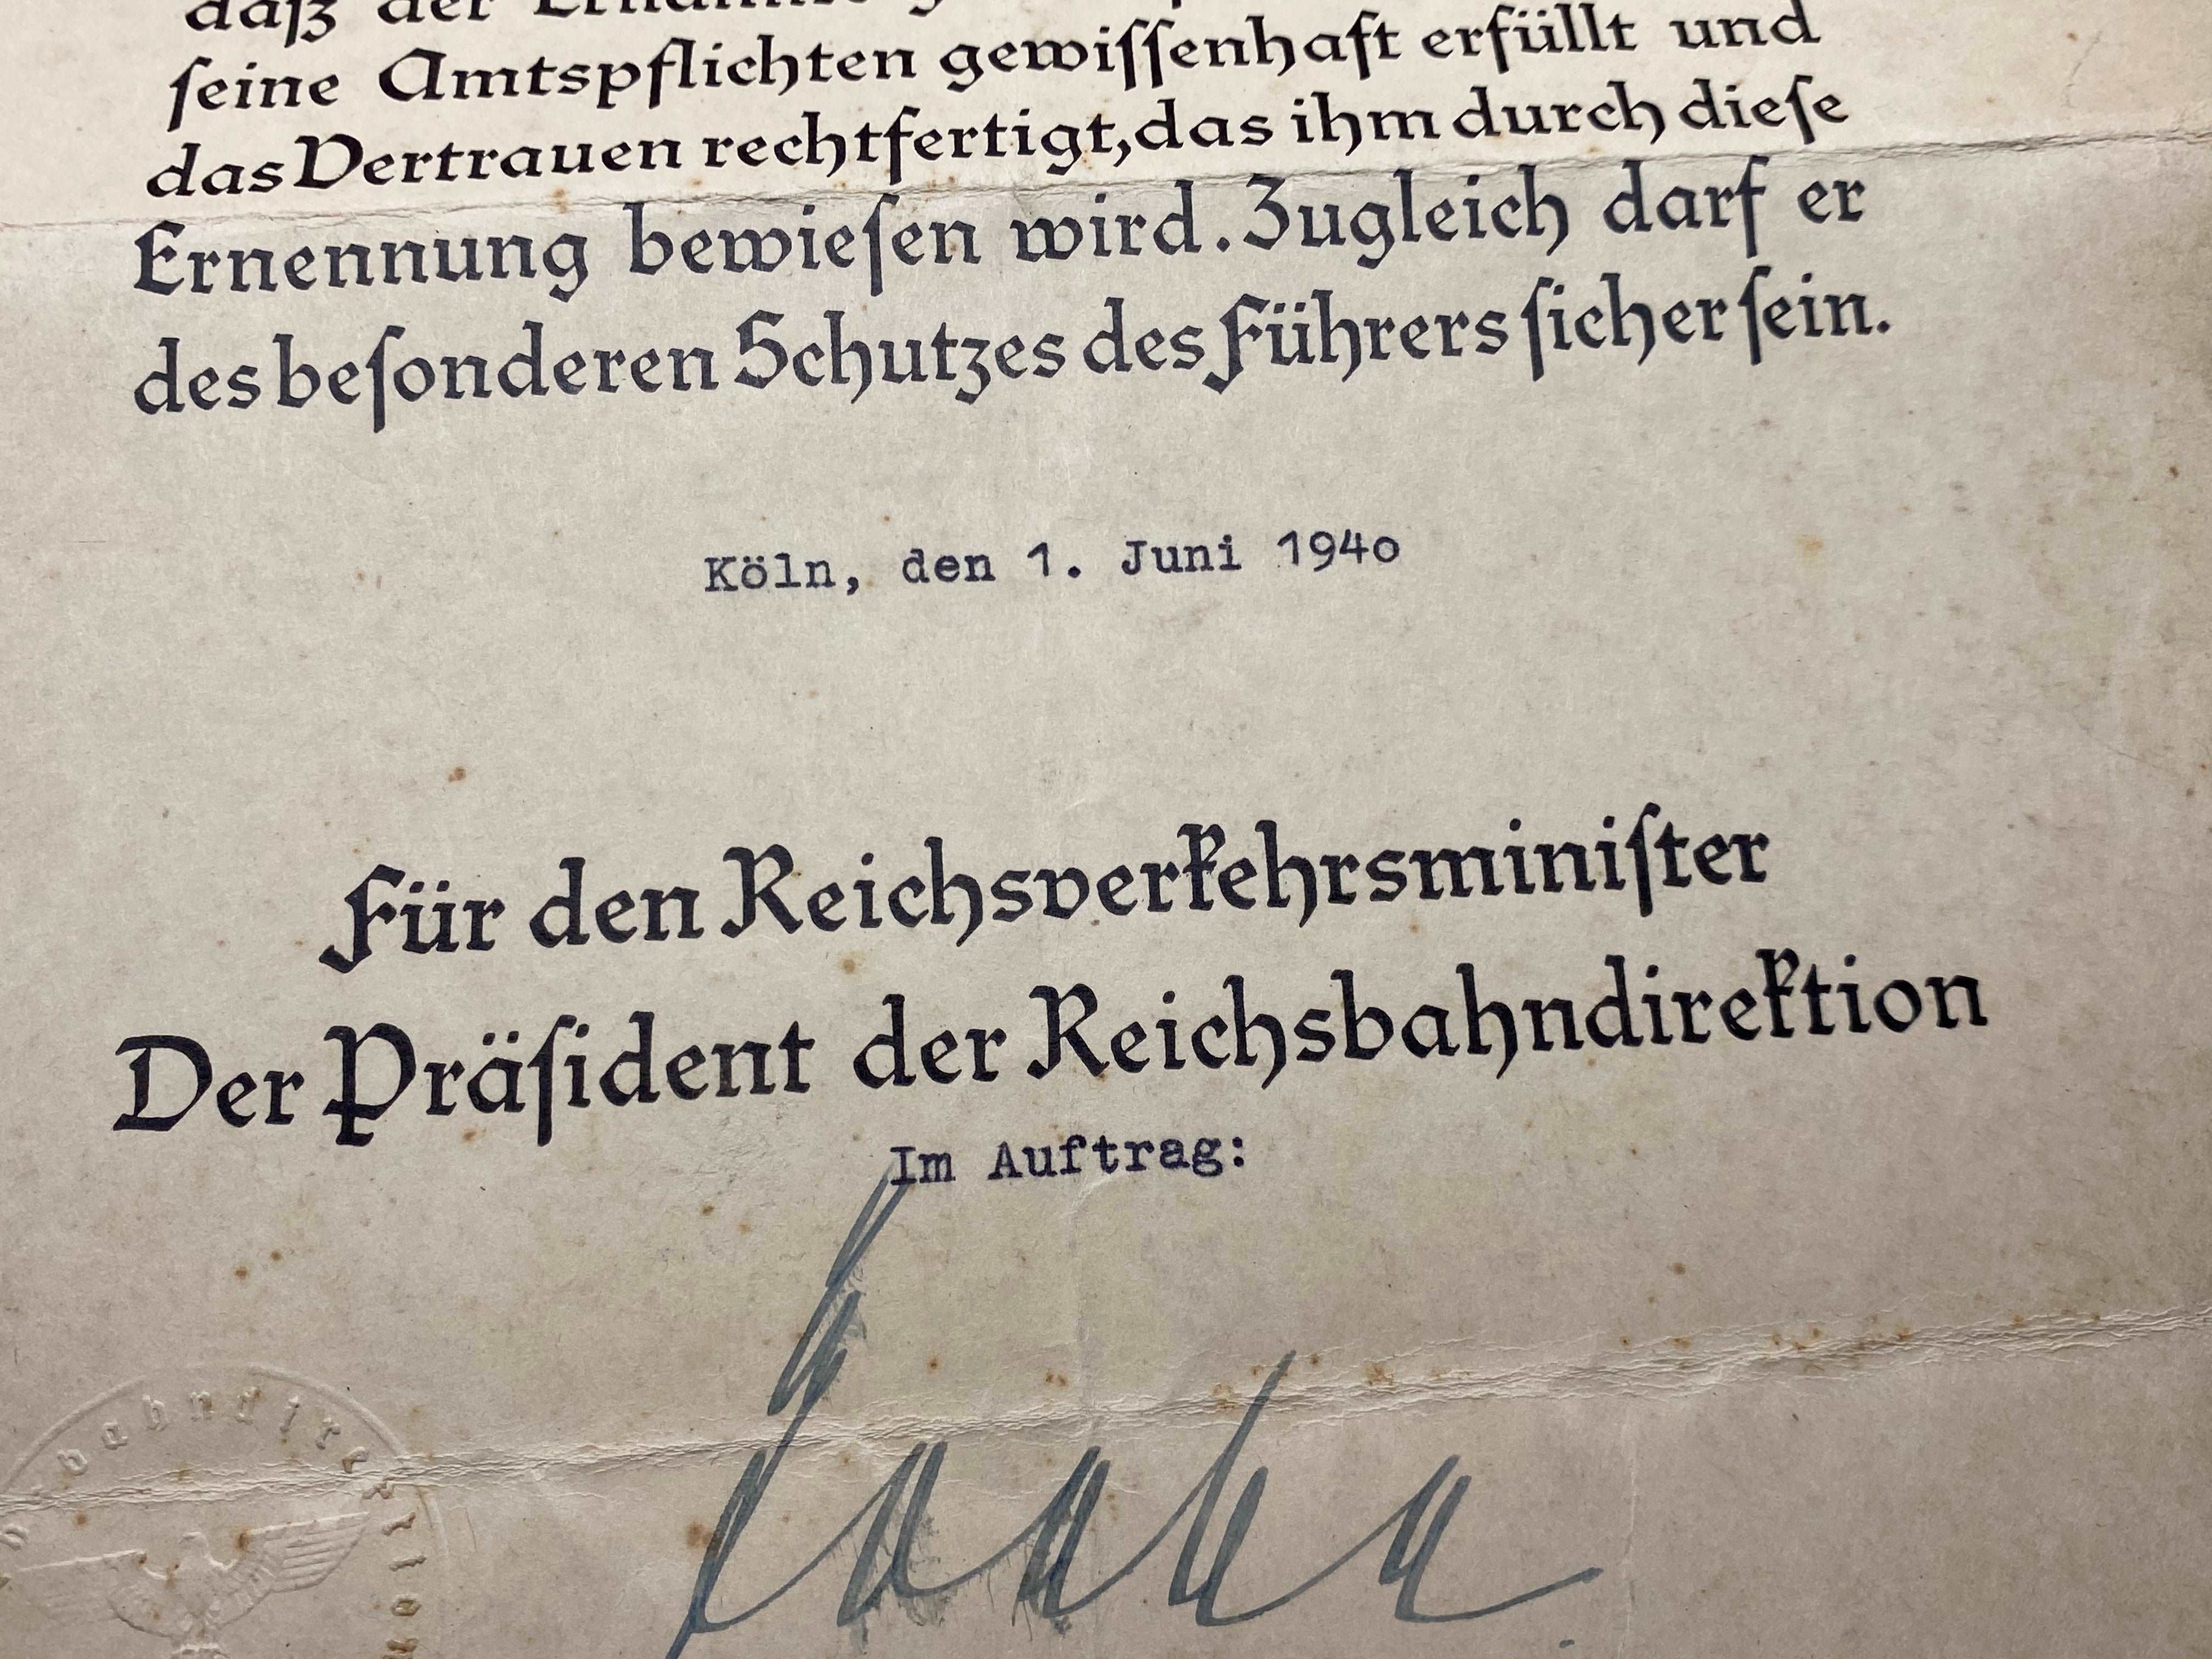 daß der
ſeine Amtspflichten gewiſſenhaft erfüllt und
das Vertrauen rechtfertigt, das ihm durch dieſe
Ernennung bewieſen wird. Zugleich darf er
des beſonderen Schutzes des Führers ſicher ſein.
Köln, den 1. Juni 1940
Für den Reichsverkehrsminiſter
Der Präſident der Reichsbahndirektion
Im Auftrag: